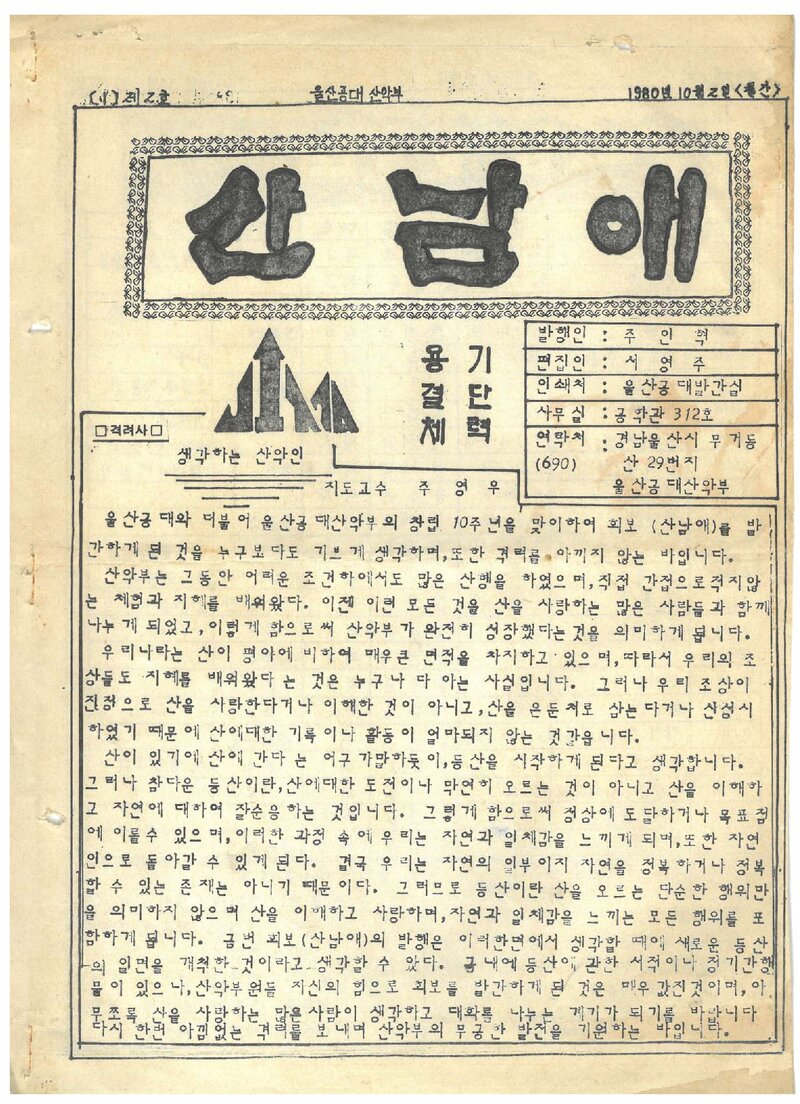 (1) 제2호
울산공대 산악부
1980년 10월 2일 <월간>
산남애
JIMA
용기
결단
체력
발행인 : 주인혁
편집인 : 서영주
인쇄처 : 울산공대발간실
사무실 : 공학관 312호
연락처 : 경남울산시 무거동
(690) 산 29번지
울산공대산악부
□격려사□
생각하는 산악인
지도교수 주영우
울산공대와 더불어 울산공대산악부의 창립 10주년을 맞이하여 회보 (산남애)를 발
간하게 된 것을 누구보다도 기쁘게 생각하며,또한 격려를 아끼지 않는 바입니다.
산악부는 그동안 어려운 조건하에서도 많은 산행을 하였으며,직접 간접으로적지않
는 체험과 지혜를 배워왔다. 이젠 이런 모든 것을 산을 사랑하는 많은 사람들과 함께
나누게 되었고,이렇게 함으로써 산악부가 완전히 성장했다는것을 의미하게 됩니다.
우리나라는 산이 평야에 비하여 매우큰 면적을 차지하고 있으며,따라서 우리의 조
상들도 지혜를 배워왔다 는 것은 누구나 다 아는 사실입니다. 그러나 우리 조상이
진정으로 산을 사랑한다거나 이해한 것이 아니고,산을 은둔처로 삼는다거나 신성시
하였기 때문에 산에대한 기록이나 활동이 얼마되지 않는 것같읍니다.
산이 있기에 산에 간다 는 어구가말하듯이,등산을 시작하게 된다고 생각합니다.
그러나 참다운 등산이란,산에대한 도전이나 막연히 오르는 것이 아니고 산을 이해하
고 자연에 대하여 잘순응하는 것입니다. 그렇게 함으로써 정상에 도달하거나 목표점
에 이를수 있으며,이러한 과정 속에 우리는 자연과 일체감을 느끼게 되며,또한 자연
인으로 돌아갈 수 있게 된다. 결국 우리는 자연의 일부이지 자연을 정복하거나 정복
할 수 있는 존재는 아니기 때문이다. 그러므로 등산이란 산을 오르는 단순한 행위만
을 의미하지 않으며 산을 이해하고 사랑하며,자연과 일체감을 느끼는 모든 행위를 포
함하게 됩니다. 금번 회보(산남애)의 발행은 이러한면에서 생각할 때에 새로운 등산
의 일면을 개척한 것이라고 생각할 수 있다. 국내에등산에 관한 서적이나 정기간행
물이 있으나,산악부원들 자신의 힘으로 회보를 발간하게 된 것은 매우 값진것이며,아
무쪼록 산을 사랑하는 많은 사람이 생각하고 대화를 나누는 계기가 되기를 바랍니다
다시 한번 아낌없는 격려를 보내며 산악부의 무궁한 발전을 기원하는 바입니다.